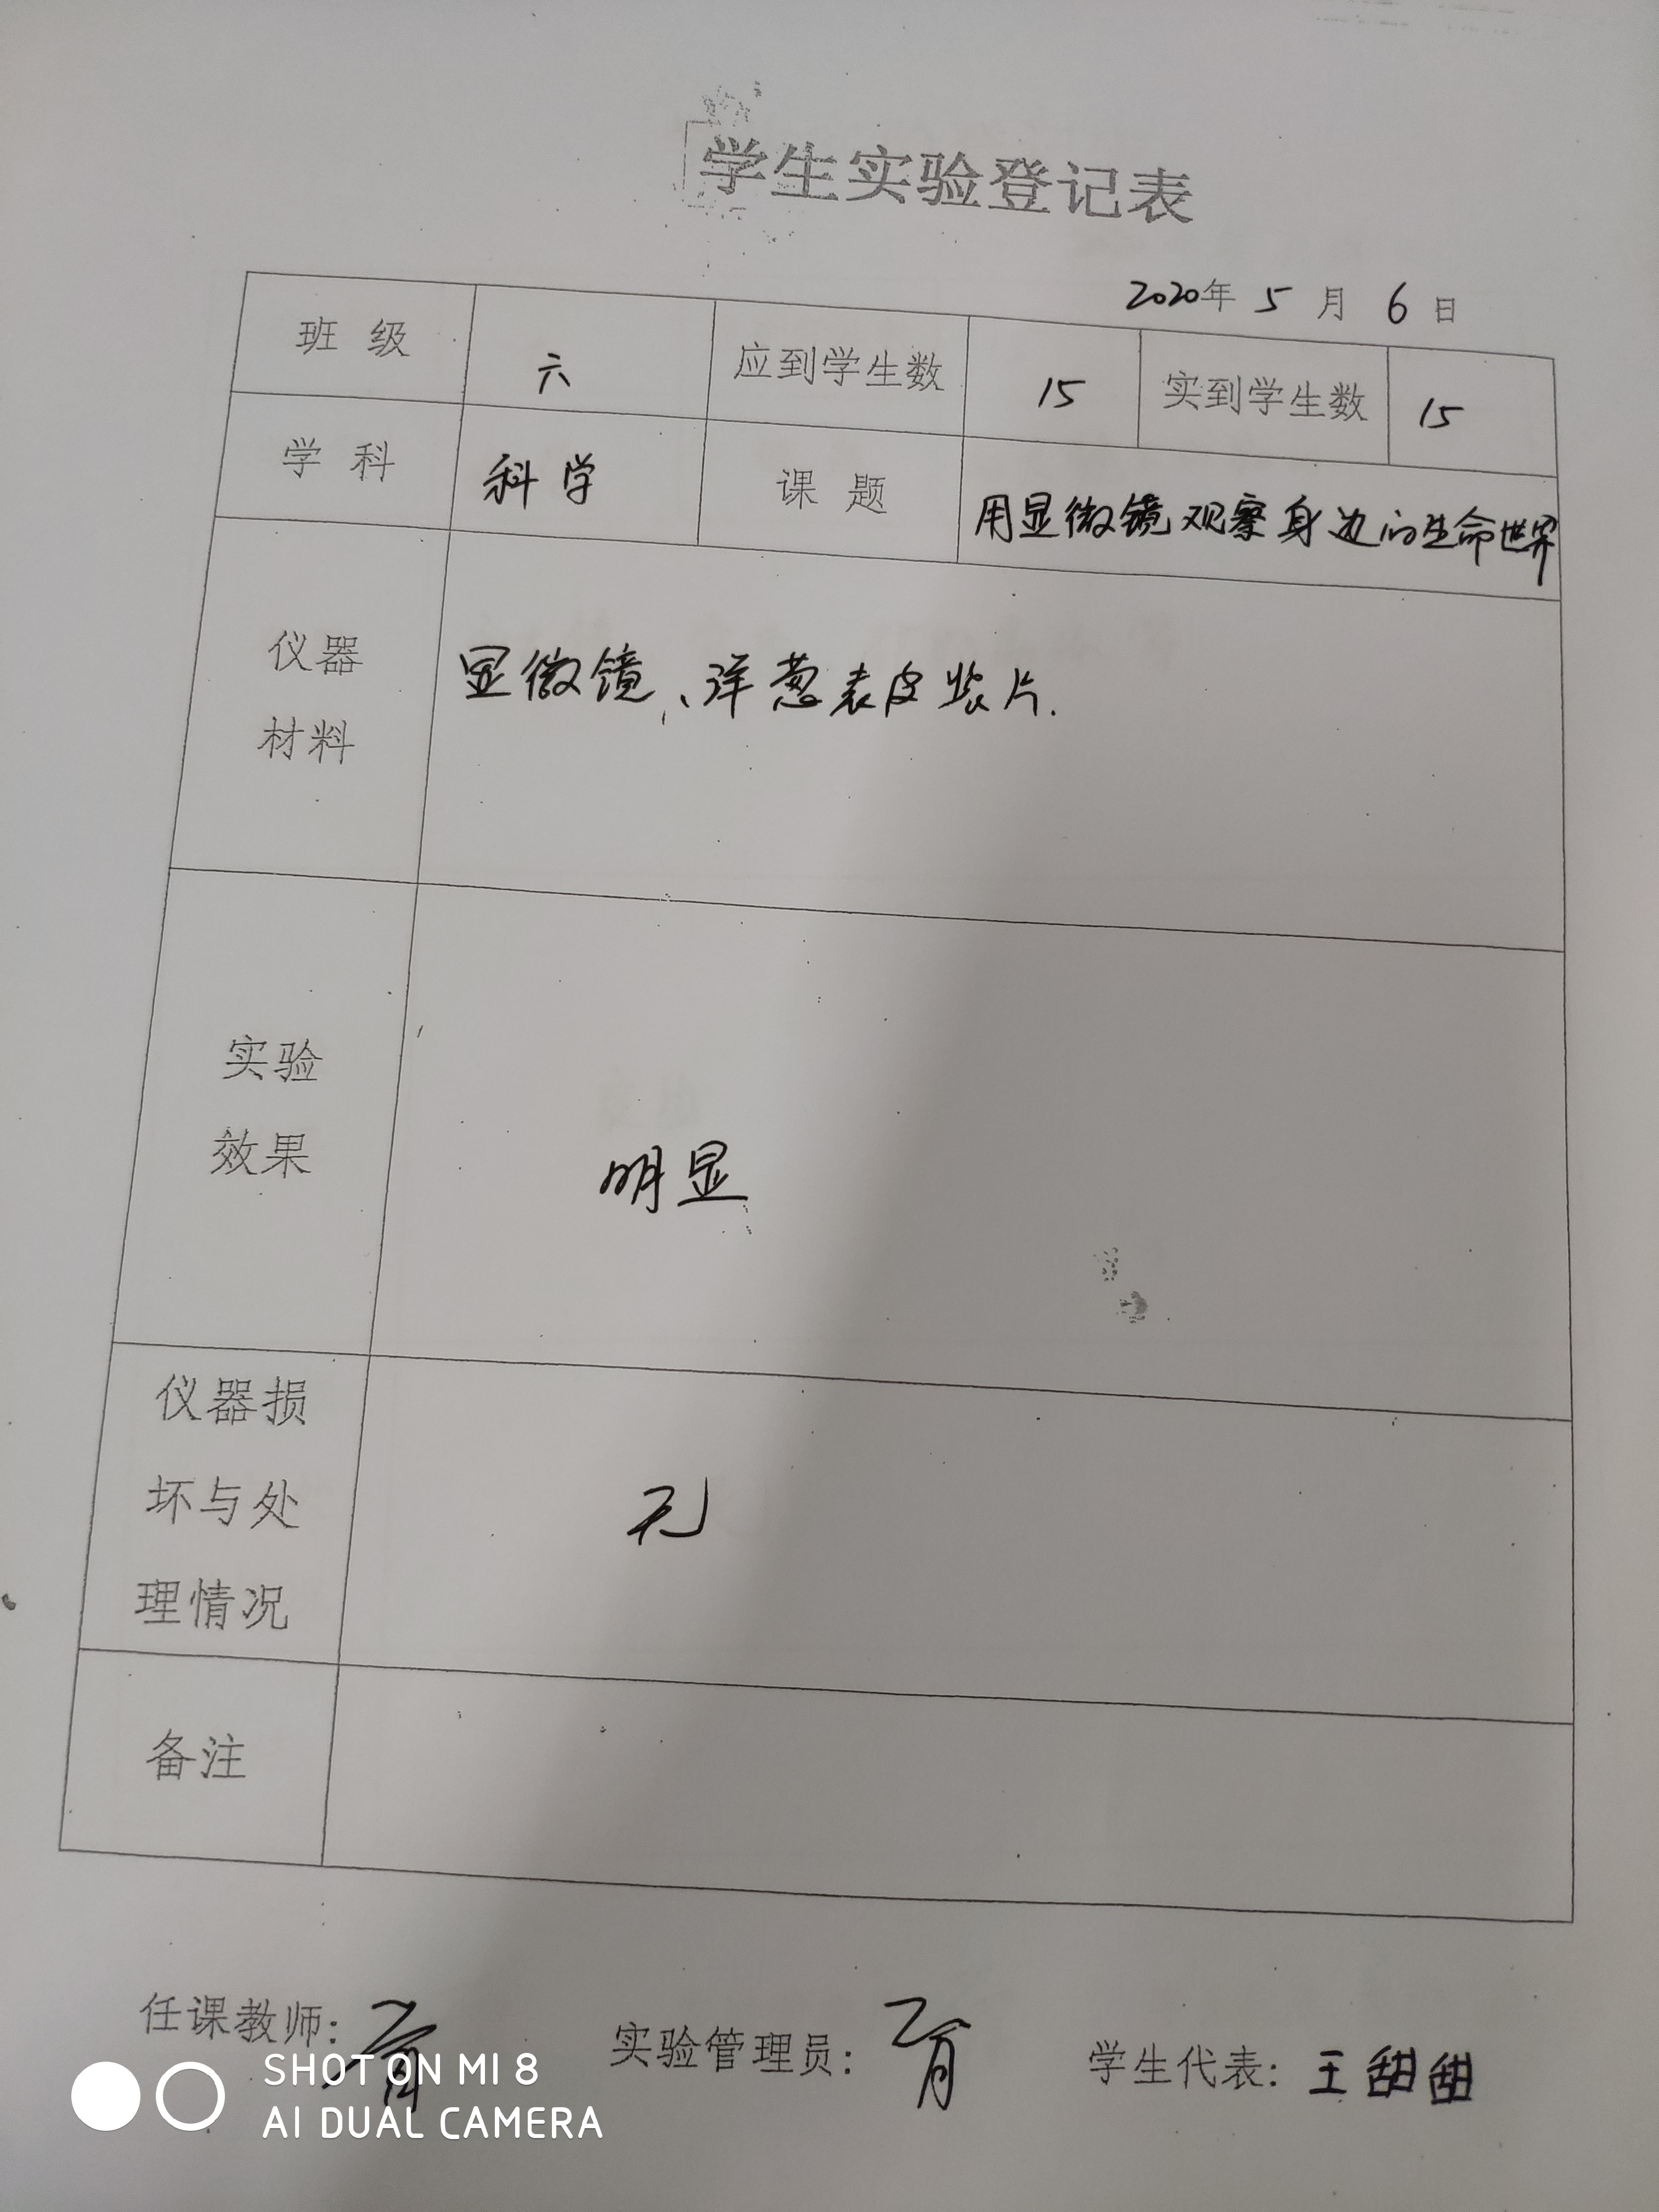 学生实验登记表
2020年 5 月 6 日
班 级 六 应到学生数 15 实到学生数 15
学 科 科学 课 题 用显微镜观察身边的生命世界
仪器
材料
显微镜、洋葱表皮装片.
实验
效果
明显
仪器损
坏与处
理情况
无
备注
任课教师: 实验管理员: 学生代表: 王甜甜
SHOT ON MI 8
AI DUAL CAMERA